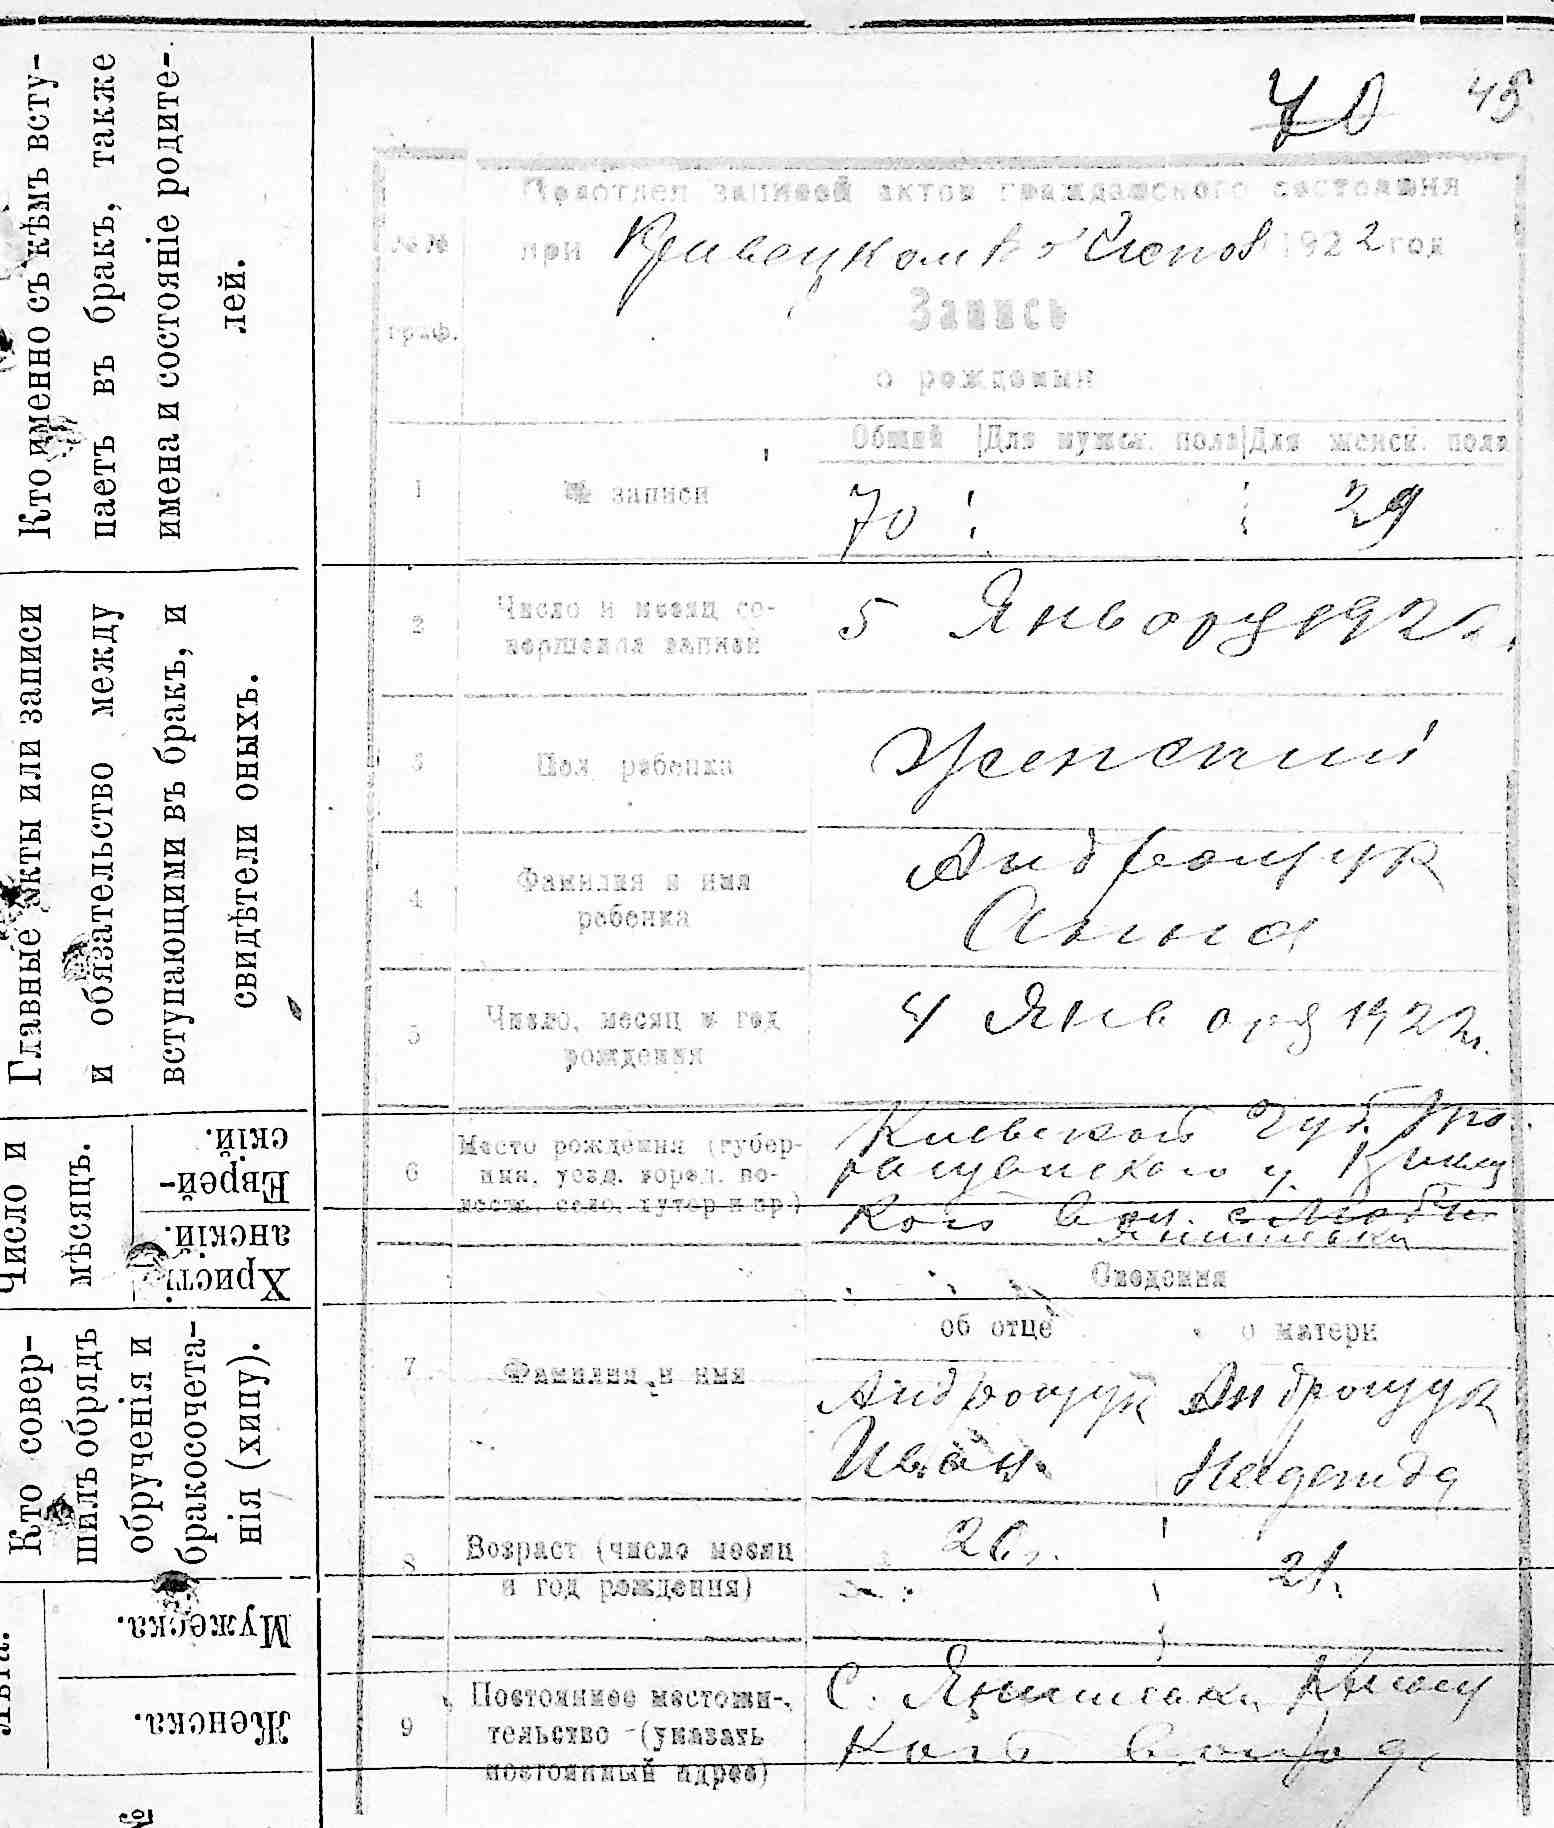 Кто именно съ кѣмъ всту-
паетъ въ бракъ, также
имена и состояніе родите-
лей.
Главные акты или записи
и обязательство между
вступающими въ бракъ, и
свидѣтели оныхъ.
Число и
мѣсяцъ.
Еврей-
скій.
Христі
анскій.
Кто совер-
шилъ обрядъ
обрученія и
бракосочета-
нія (хипу).
Мужеска.
Женска.
№
70 45
Подотдел записей актов гражданского состояния
№№ при 1922 год
граф.
Запись
о рождении
Общий | Для мужск. пола | Для женск. пола
1 № записи 70 29
2 Число и месяц со-
вершения записи
5 Января 192
3 Пол ребенка Женский
4 Фамилия и имя
ребенка
Андрощук
Анна
5 Число, месяц и год
рождения
4 Января 1922 г.
6 Место рождения (губер-
ния, уезд, город, во-
лость, село, хутор и пр.)
Киевской Губ.
у.
кой вол. с.
Сведения
об отце о матери
7 Фамилия и имя
Андрощук Андрощук
Иван. Надежда
8 Возраст (число месяц
и год рождения)
21.
9 Постоянное местожи-
тельство (указать
постоянный адрес)
С.
кой